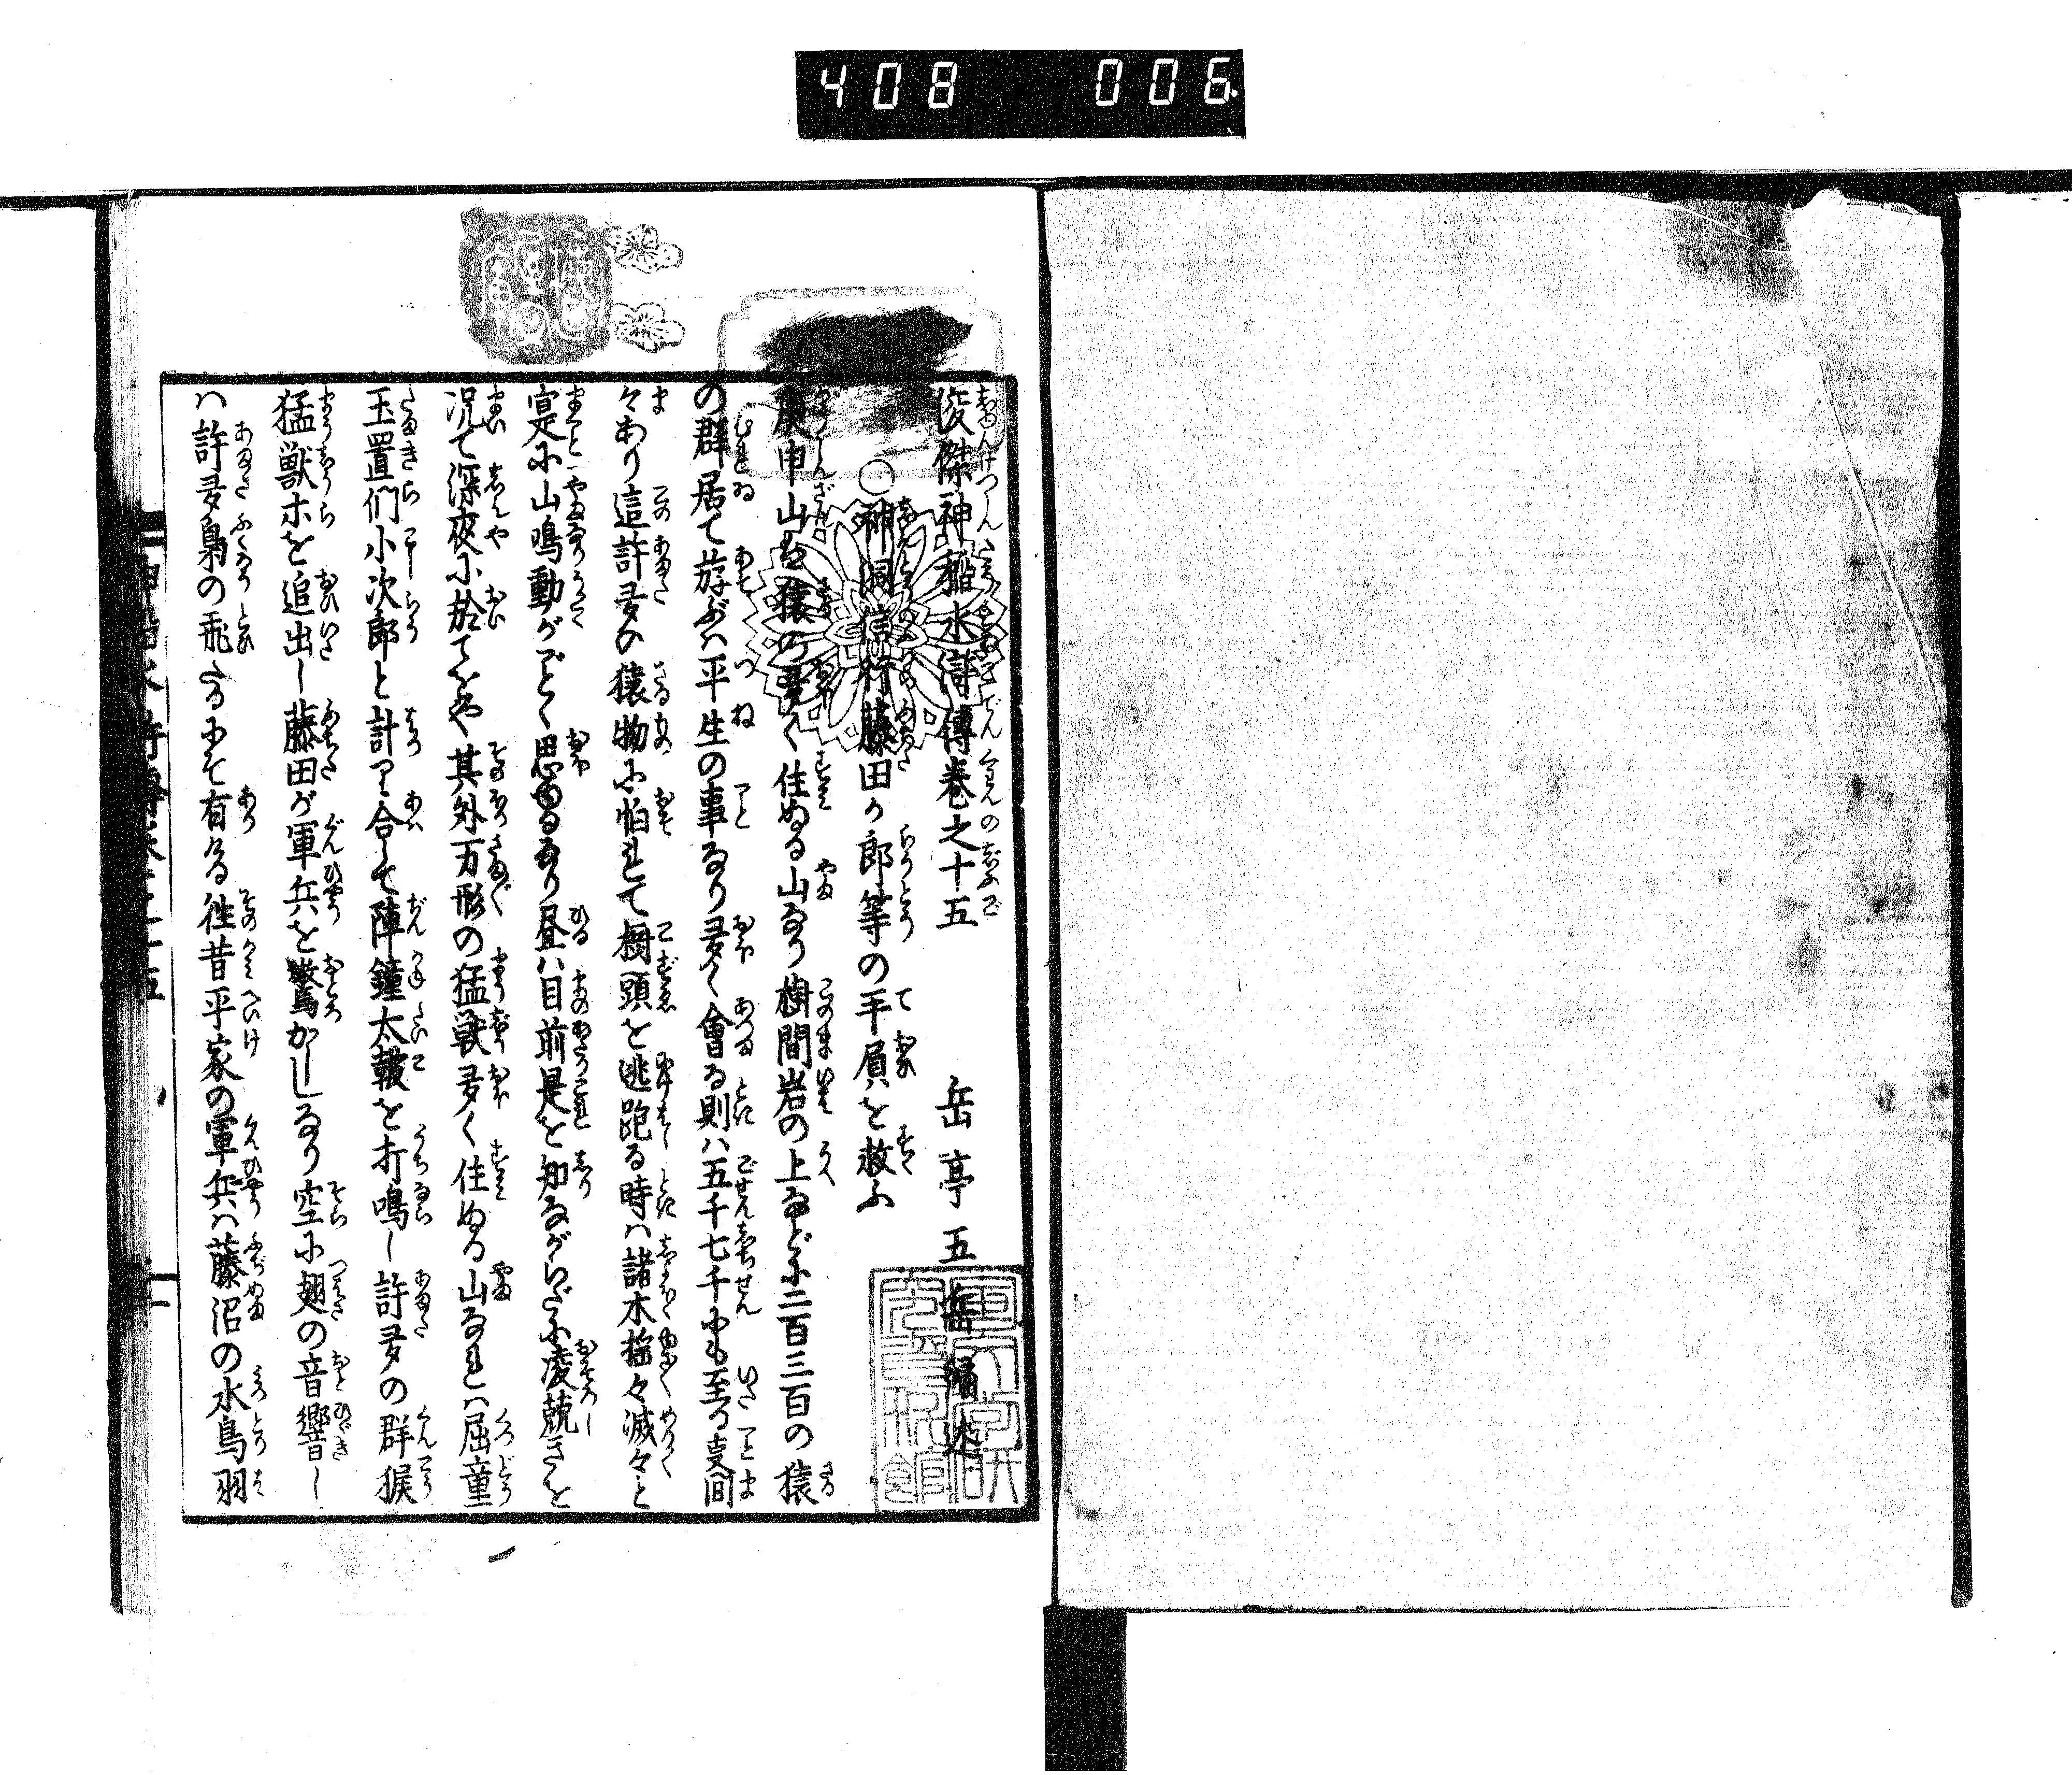 408 006
俊傑神稲水滸傳巻之十五 岳亭五岳編述
○神洞信行藤田が郎等の手屓を救ふ
庚申山は猿の多く住ぬる山なり樹間岩の上などに二百三百の猿
の群居て莚ぶハ平生の事なり多く會る則ハ五千七千にも至る叓間
々あり這許多の猿物に怕れて樹頭を逃跑る時ハ諸木揺々滅々と
寔に山鳴動がごとく思ゆるなり昼ハ目前是を知ながらだに凌兢きを
况て深夜に於てをや其外万形の猛獣多く住ぬる山なれハ屈童
玉置們小次郎と計り合して陣鐘太鼓を打鳴し許多の群猴
猛獣ホを追出し藤田が軍兵を驚かしゝなり空に翅の音響し
ハ許多梟の飛さるにぞ有ける徃昔平家の軍兵ハ藤沼の水鳥羽